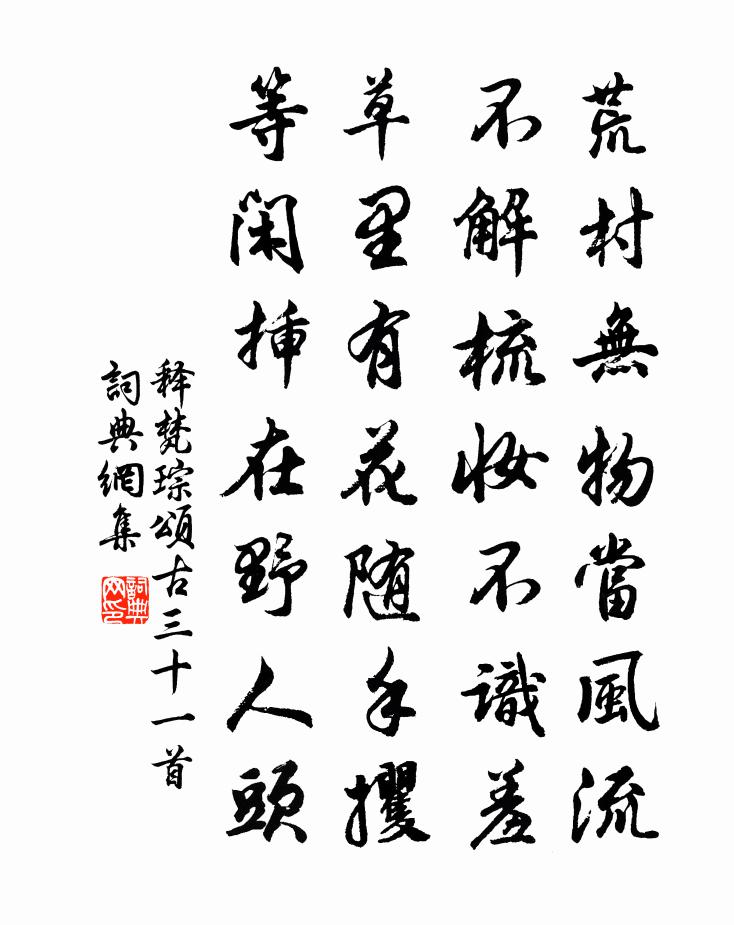 荒村無物當風流
不解梳妝不識羞
草里有花随手攫
等閑挿在野人頭
释梵琮頌古三十一首
詞典網集
詞典网印